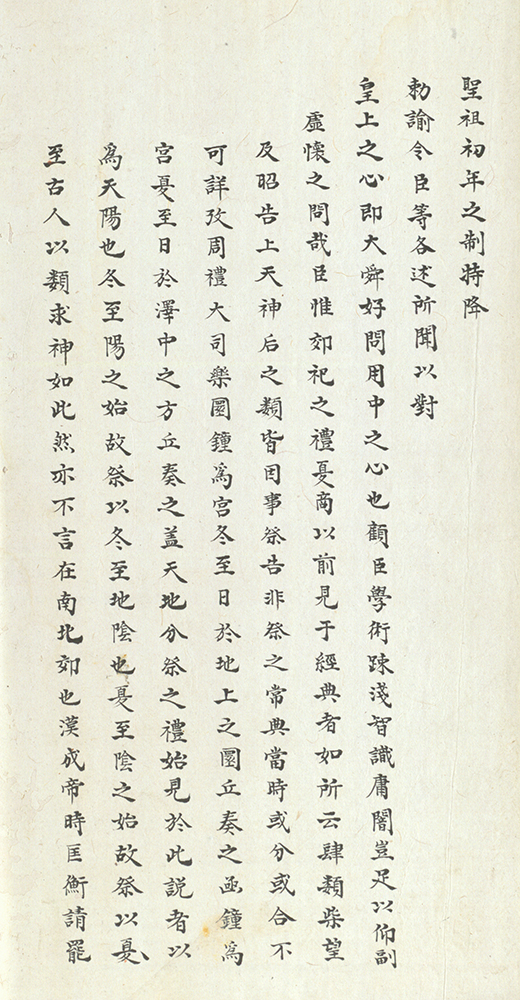 聖祖初年之制特降
勑諭令臣等各述所聞以對
皇上之心即大舜好問用中之心也顧臣學術踈淺智識庸闇豈足以仰副
虛懷之問哉臣惟郊祀之禮夏商以前見于經典者如所云肆類柴望
及昭告上天神后之類皆因事祭告非祭之常典當時或分或合不
可詳攷周禮大司樂圜鍾爲宮冬至日於地上之圜丘奏之函鍾爲
宮夏至日於澤中之方丘奏之盖天地分祭之禮始見於此説者以
爲天陽也冬至陽之始故祭以冬至地陰也夏至陰之始故祭以夏
至古人以類求神如此然亦不言在南北郊也漢成帝時匡衡請罷